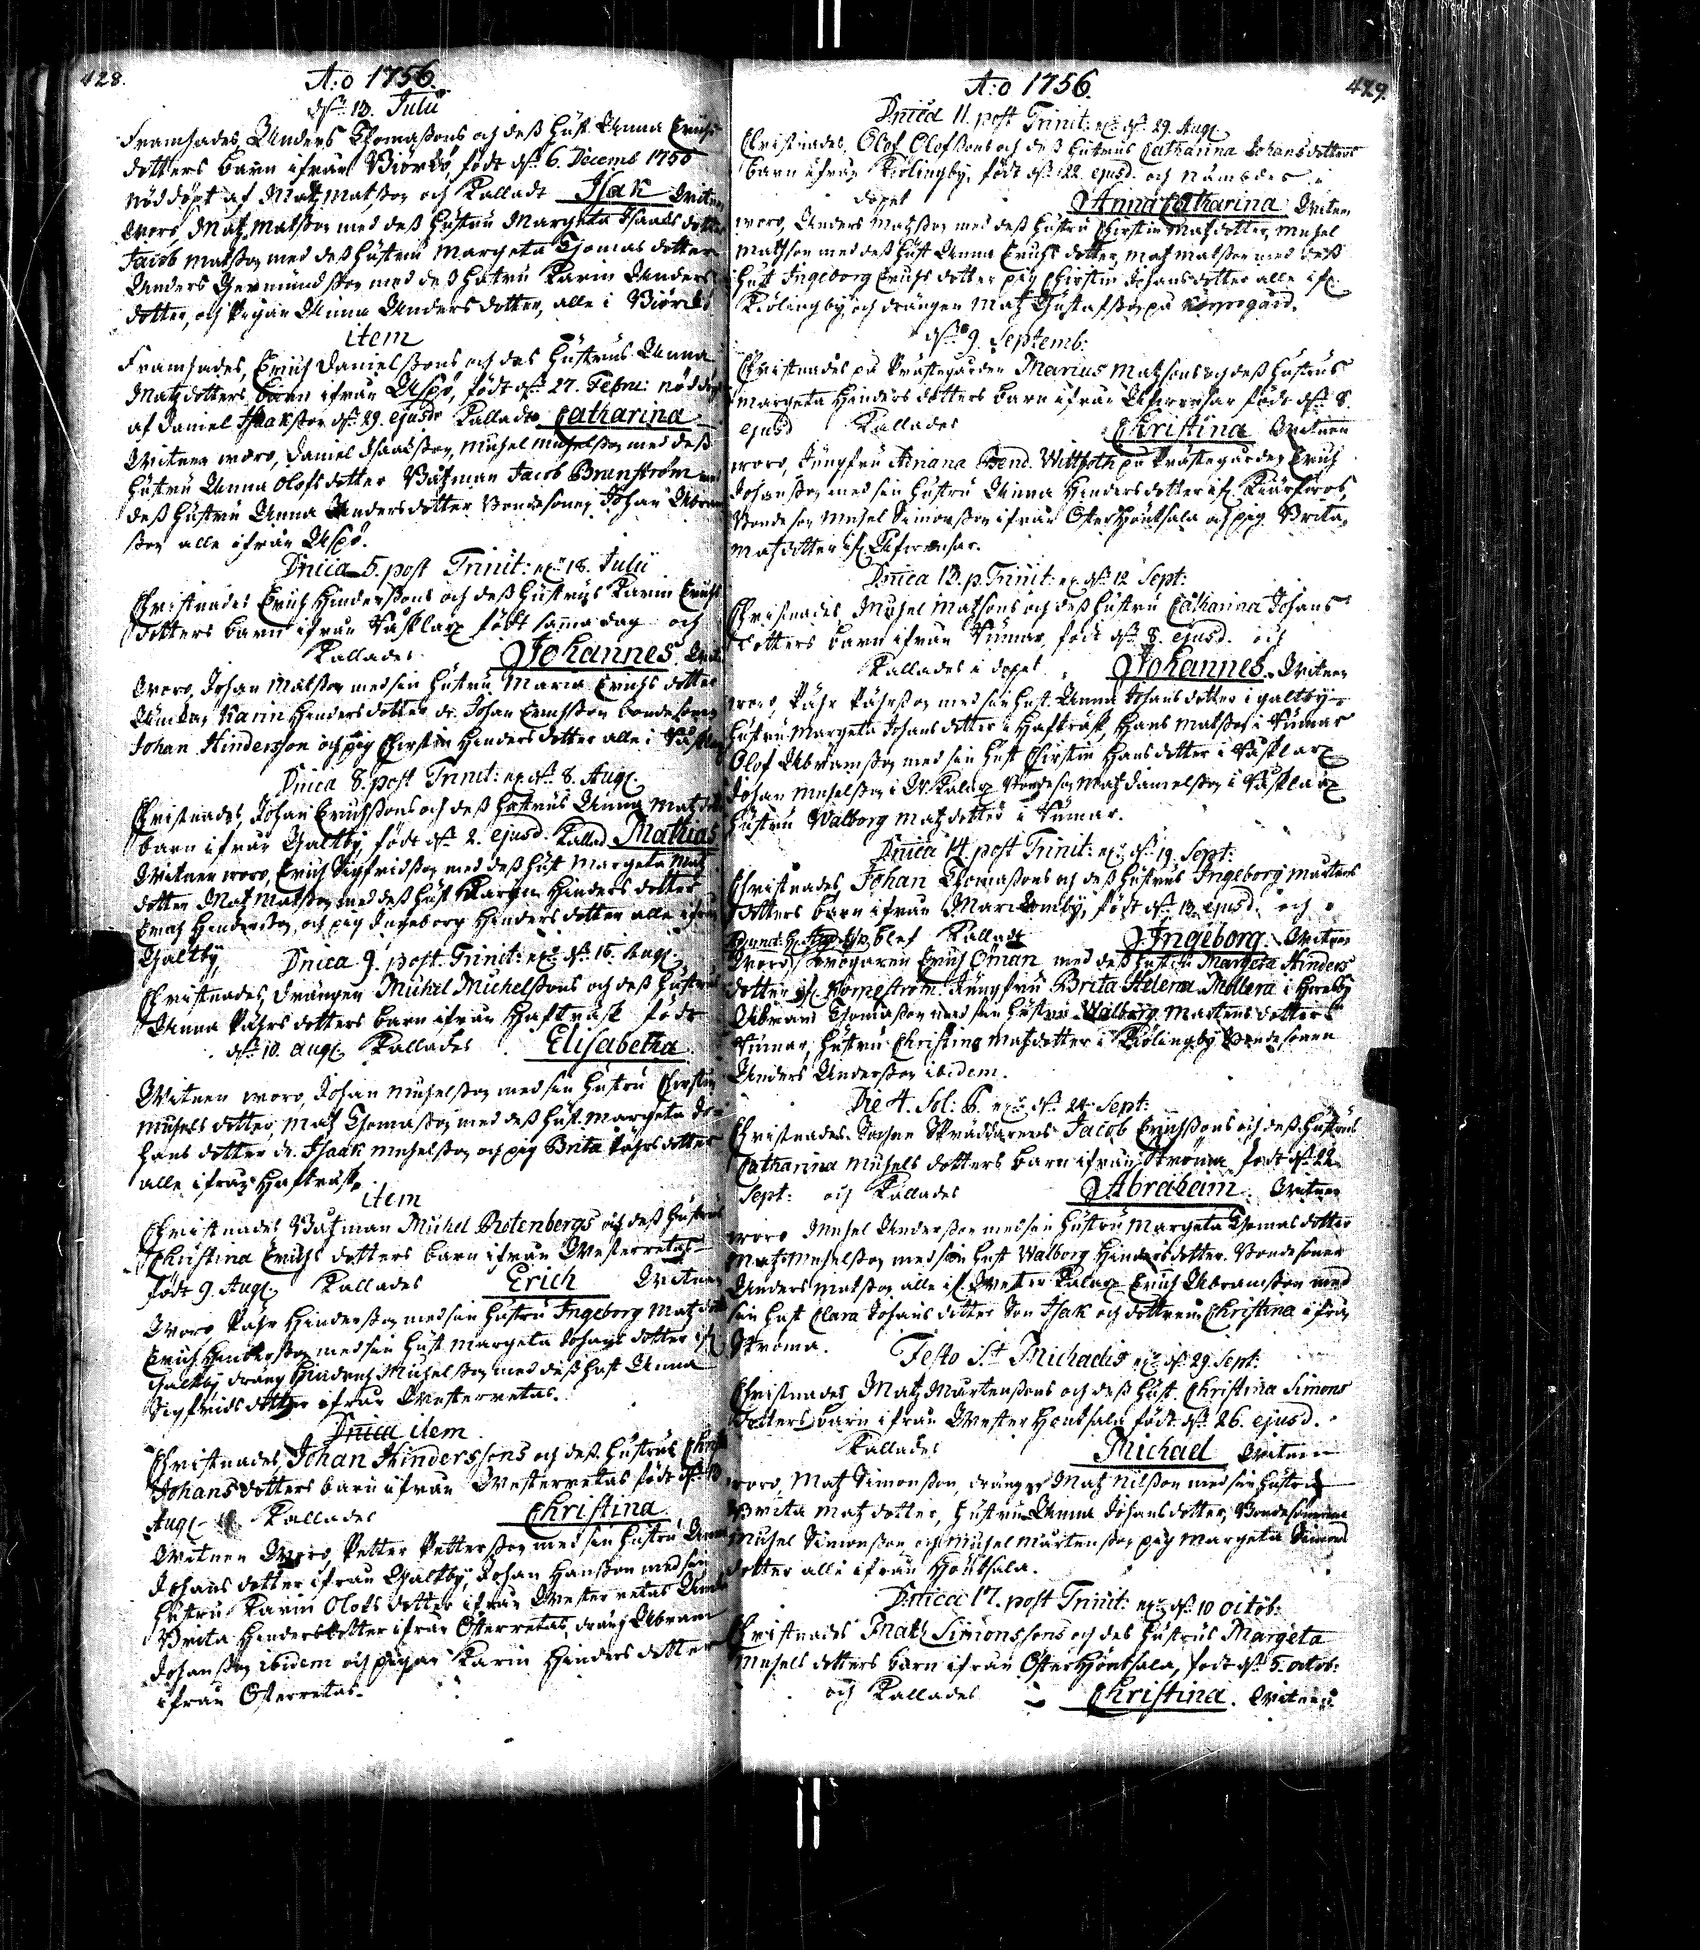 428.
A:o 1756.
d. 13. Julii
Framsades Anders Thomassons och dess hust. Anna Erichs
dotters barn ifrån Biörkö, födt d. 6. Decemb 1755
nöddöpt af Matz Matsson och Kallades Isak Witnen
woro, Matz Matsson med dess hustru Margeta Isaacs dotter
Jacob Matsson med dess hustru Margeta Thomas dotter
Anders Germundsson med dess hustru Karin Anders
dotter, och pigan Anna Anders dotter, alle i Biörkö
item
Framsades, Erich Danielssons och des hustrus Anna
Matz dotters barn ifrån Aspö, födt d. 27. Febru: nöddöpt
af Daniel Isaksson d. 29. ejusd: Kallades Catharina
Witnen woro, Daniel Isaacsson, Michel Michelsson med dess
hustru Anna Olofs dotter Båtzman Jacob Brunström med
dess hustru Anna Anders dotter Bondesonen Johan Abram
sson alle ifrån Aspö.
Dnica 5. post Trinit: 18. Julii
Christnades Erich Hinderssons och dess hustrus Karin Erichs
dotters barn ifrån Kåsklax födt samma dag och
Kallades Johannes. Witn
woro, Johan Matsson med sin hustru Maria Erichs dotter
Karin Henders dotter dr. Johan Erichsson bondesonen
Johan Hindersson och pig Chirstin Henders dotter alle i
Dnica 8. post Trinit: d. 8. Aug.
Christnades, Johan Erichssons och dess hustrus Anna Matz dott
barn ifrån Galtby, födt d. 2. ejusd. Kallad Mathias
Witnen woro, Erich Sigfridsson med dess hust Margeta Matz
dotter Matz Matsson med dess hust Karin Hinders dotter
Erich Hendersson, och pig Ingeborg Hinders dotter alle ifrån
Galtby, Dnica 9. post Trinit: d. 15. Aug.
Christnades, drängen Michel Michelssons och dess hustrus
Anna Påhrs dotters barn ifrån Hafträsk födt
d. 10. Aug. Kallades Elisabetha
Witnen woro, Johan Michelsson med sin hustru Chirstin
Michels dotter, Matz Thomasson med dess hust. Margeta Jo-
hans dotter dr. Isaak Michelsson och pig Brita Påhrs dotter
alle ifrån Hafträsk,
item
Christnades Båtzman Michel Rotenbergs och dess hustrus
Christina Erichs dotters barn ifrån Westerretas
födt 9. Aug. Kallades Erich Witnen
woro Påhr Hindersson med sin hustru Ingeborg Matz dott
Erich Hindersson med sin hust Margeta Johans dotter if
Galtby dräng Hindrich Michelsson med dess hust Anna
Sigfrids dotter ifrån Westerretas.
Dnica item
Christnades, Johan Hinderssons och dess hustrus
Johans dotters barn ifrån Westerretas födt d. 13
Aug. Kallades Christina
Witnen Woro, Petter Pettersson med sin hustru Anna
Johans dotter ifrån Galtby, Johan Hansson med sin
hustru Karin Olofs dotter ifrån Westerretas
Brita Henders dotter ifrån Österretas, dräng Abram
Johansson ibidem och pigan Karin Hinders dotter
ifrån Österretas.
A:o 1756.
429.
Dnica 11. post Trinit: d. 29. Aug.
Christnades, Olof Olofssons och dess hustrus Catharina Johans dotters
barn ifrån Kiölingby, födt d. 22. ejusd. och nämdes i
dopet Anna Catharina Witnen
woro, Anders Matsson med dess hustru Chirstin Matz dotter, Michel
Matsson med dess hust Anna Erichs dotter, Matz Matsson med dess
hust Ingeborg Erichs dotter pig Chirstin Johans dotter alle if.
Kiölingby och drängen Matz Gustafsson på Korpogård.
d. 9. Septemb:
Christnades på Prästegården Marius Matssons och dess hustrus
Margeta Hinders dotters barn ifrån födt d. 8.
ejusd Kallades Christina Witnen
woro, Jungfru Adriana Bend. Wittfoth på Prästegården Erich
Johansson med sin hustru Anna Henders dotter if.
Bondeson Michel Simonsson ifrån Österhönsala och pig Brita
Matz dotter if.
Dnica 13. p. Trinit: d. 12 Sept:
Christnades, Michel Matssons och dess hustru Catharina Johans
dotters barn ifrån Rumar, födt d. 8. ejusd. och
Kallades i dopet Johannes. Witnen
woro, Påhr Påhrsson med sin hust. Anna Johans dotter i Galtby
hustru Margeta Johans dotter i Hafträsk Hans Matsson i Rumar
Olof Abramsson med sin hust Chirstin Hans dotter i Kåsklax
Johan Michelsson i W. Kalax Bondeson Matz Danielsson i Kåsklax
hustru Walborg Matz dotter i Rumar.
Dnica 14 post Trinit: d. 19. Sept:
Christnades Johan Thomassons och dess hustrus Ingeborg Martens
dotters barn ifrån Marckomby, födt d. 13. ejusd. och
blef Kalladt Ingeborg. Witnen
Woro, Erich Öman med dess hustru Margeta Hinders
dotter if. Korpoström. Jungfru Brita Helena Möllera i
Abram Thomasson med sin hustru Walborg Martens dotter i
Rumar, hustru Christina Matz dotter i Kiölingby Bondesonen
Anders Andersson ibidem.
Die 4. Sol: 6. d. 24 Sept:
Christnades Sochne Skräddarens Jacob Erichssons och dess hustrus
Catharina Michels dotters barn ifrån Ströma födt d. 22
Sept: och Kallades Abraham. Witnen
woro Michel Andersson med sin hustru Margeta Thomas dotter
Matz Michelsson med sin hust Walborg Hinders dotter. Bondesonen
Anders Matsson alle if. Wester Kalax Erich Abramsson med
sin hust Clara Johans dotter Son Isak och dottren Christina ifrån
Ströma. Festo S:t Michaelis d. 29. Sept:
Christnades Matz Mårtenssons och dess hust. Christina Simons
dotters barn ifrån Wester Hönsala födt d. 26. ejusd.
Kallades Michael Witnen
woro, Matz Simonsson, drängen Matz Nilsson med sin hustru
Brita Matz dotter, hustru Anna Johans dotter, Bondesönerna
Michel Simonsson och Michel Mårtensson pig Margeta Simons
dotter alle ifrån Hönsala.
Dnica 17. post Trinit: d. 10 octob:
Christnades Matz Simonssons och des hustrus Margeta
Michels dotters barn ifrån Öster Hönsala, födt d. 5. octob:
och Kallades Christina. Witnen